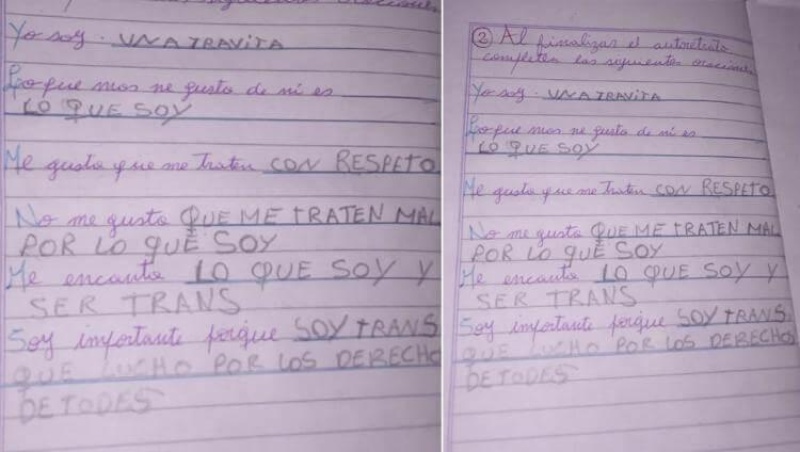 Yo soy. UNA TRAVITA
Lo que mas me gusta de mi es
LO QUE SOY
Me gusta que me traten CON RESPETO
No me gusta QUE ME TRATEN MAL
POR LO QUE SOY
Me encanta LO QUE SOY Y
SER TRANS
Soy importante porque SOY TRANS
QUE LUCHO POR LOS DERECHO
DE TODES
② Al finalizar el autorretrato
completen las siguientes oraciones
Yo soy. UNA TRAVITA
Lo que mas me gusta de mi es
LO QUE SOY
Me gusta que me traten CON RESPETO
No me gusta QUE ME TRATEN MAL
POR LO QUE SOY
Me encanta LO QUE SOY Y
SER TRANS
Soy importante porque SOY TRANS
QUE LUCHO POR LOS DERECHOS
DE TODES